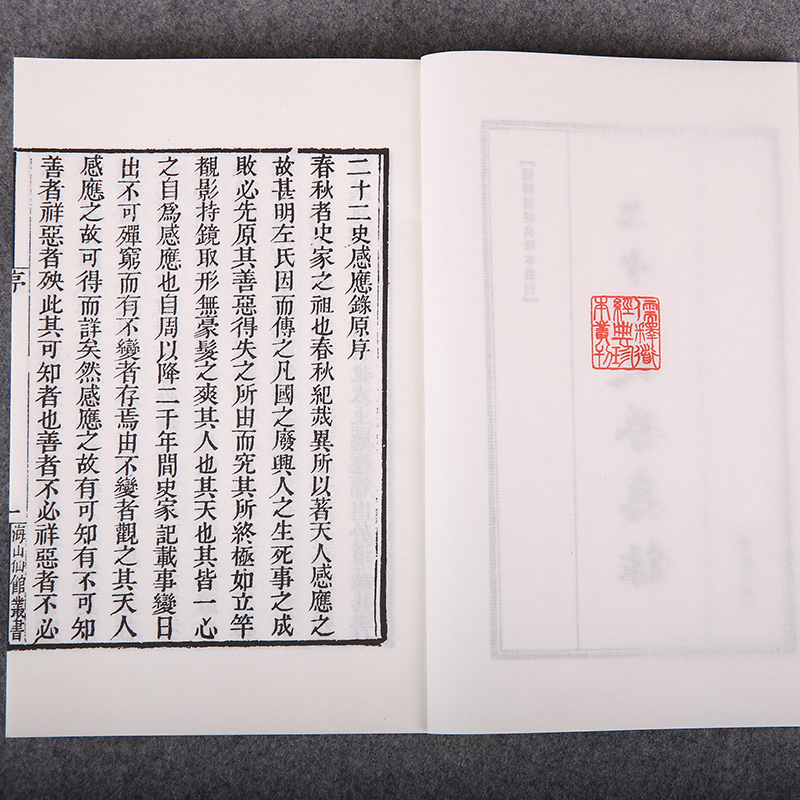 儒釋道
經典珍
本叢刊
二十二史感應錄原序
春秋者史家之祖也春秋紀烖異所以著天人感應之
故甚明左氏因而傳之凡國之廢興人之生死事之成
敗必先原其善惡得失之所由而究其所終極如立竿
覩影持鏡取形無豪髮之爽其人也其天也其皆一心
之自為感應也自周以降二千年間史家記載事變日
出不可殫窮而有不變者存焉由不變者觀之其天人
感應之故可得而詳矣然感應之故有可知有不可知
善者祥惡者殃此其可知者也善者不必祥惡者不必
序
一
海山仙館叢書